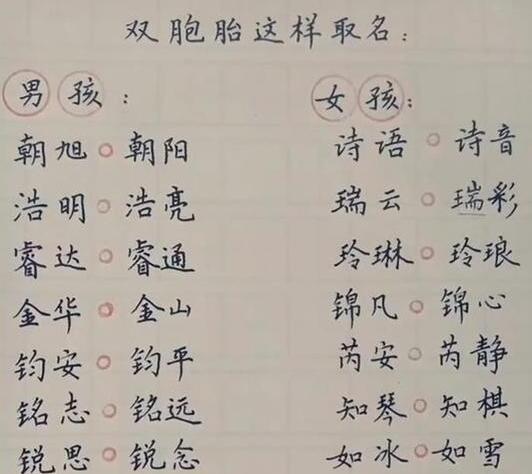 双胞胎这样取名：
男孩： 女孩：
朝旭○朝阳 诗语○诗音
浩明○浩亮 瑞云○瑞彩
睿达○睿通 玲琳○玲琅
金华○金山 锦凡○锦心
钧安○钧平 芮安○芮静
铭志○铭远 知琴○知棋
锐思○锐念 如冰○如雪